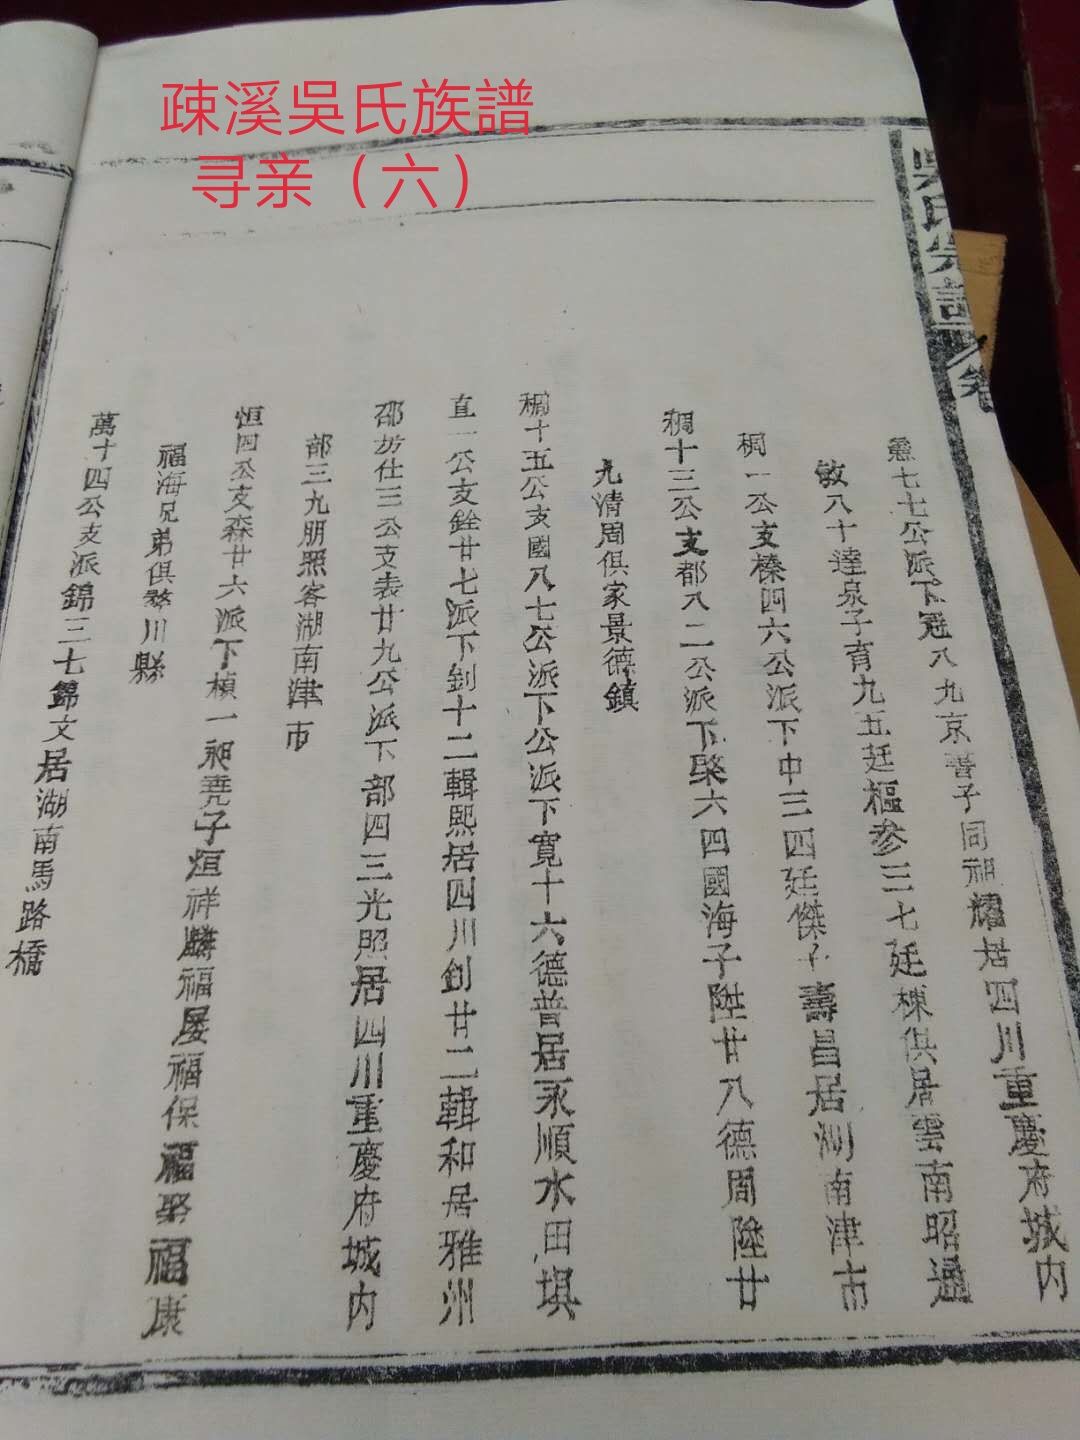 疎溪吳氏族譜
寻亲（六）
吳氏宗譜 卷
七七公派下冠八九京善子同祖耀居四川重慶府城内
敏八十達泉子育九五廷樞参三七廷棟俱居雲南昭通
稠一公支榛四六公派下中三四廷傑子壽昌居湖南津市
稠十三公支都八二公派下棨六四國海子陞廿八德周陞廿
九清周俱家景德鎮
稠十五公支國八七公派下公派下寛十六德普居永順水田埧
直一公支銓廿七派下釗十二輯熙居四川釗廿二輯和居雅州
邵坊仕三公支表廿九公派下部四三光照居四川重慶府城内
部三九朋照客湖南津市
恒四公支森廿六派下楨一昶尭子烜祥麟福屡福保福聚福康
福海兄弟俱黟川縣
萬十四公支派錦三七錦文居湖南馬路橋